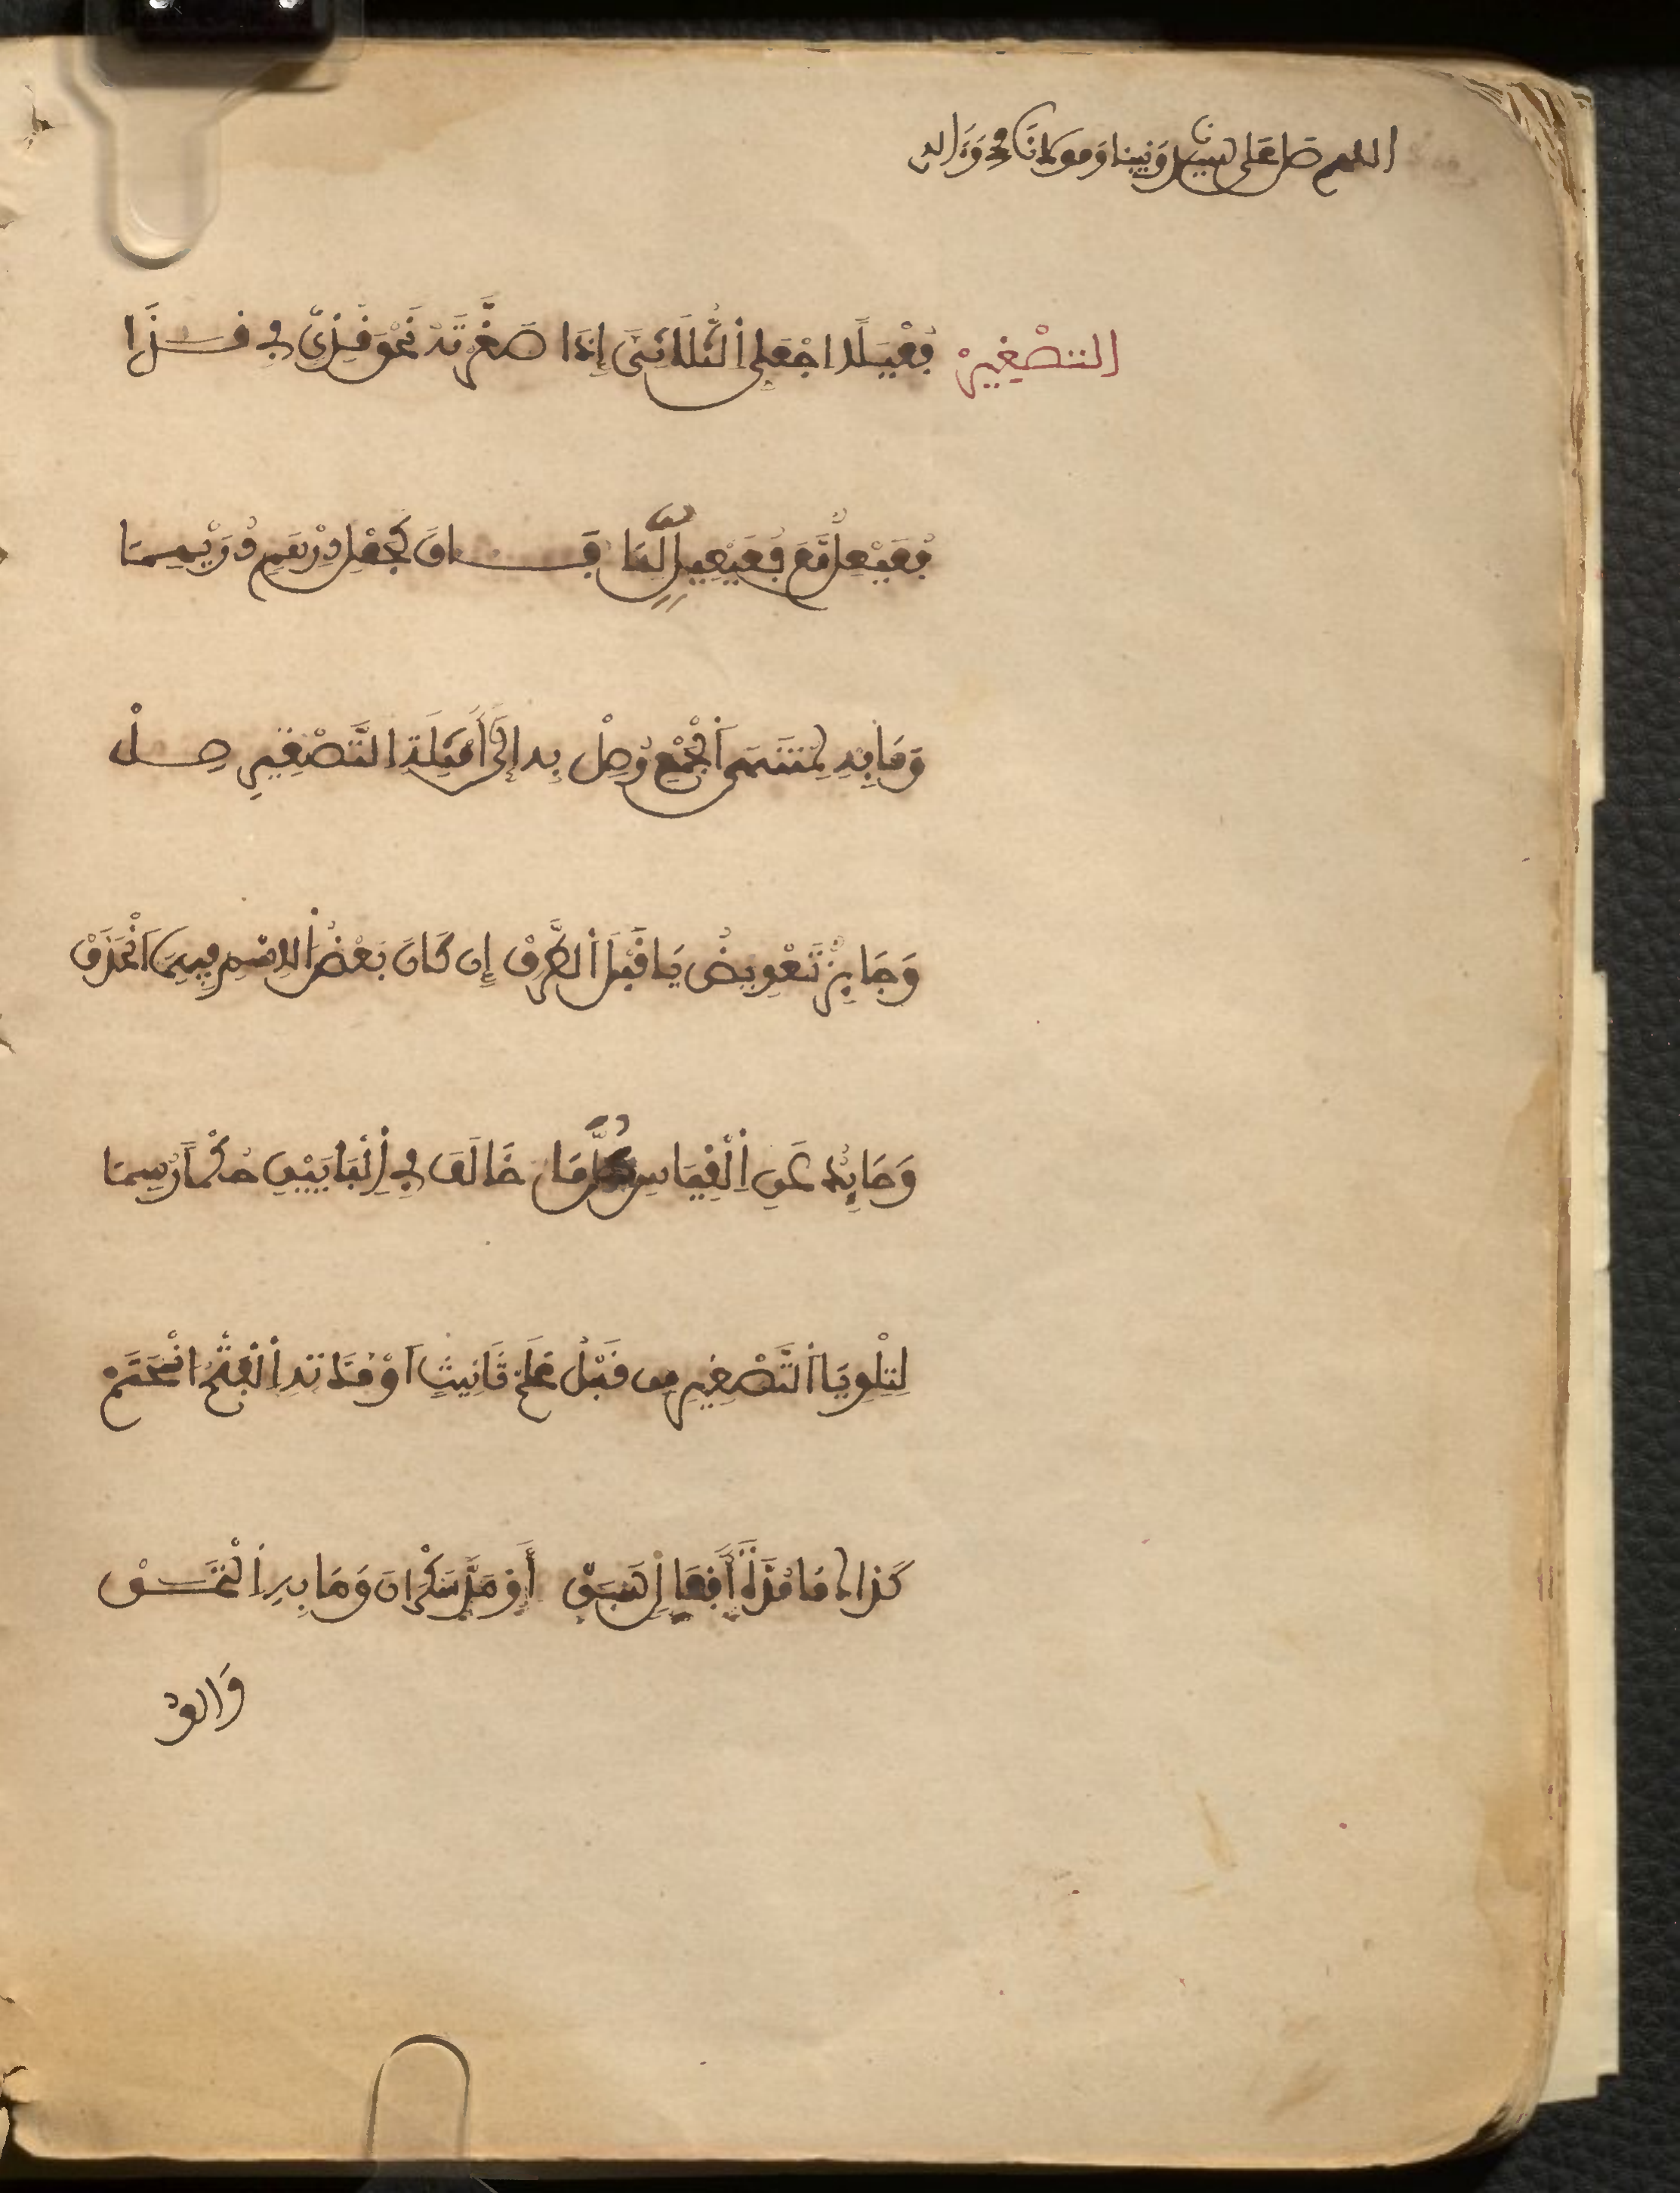 اللهم صل على سيدنا ونبينا ومولانا محمد وءاله
التَّصْغِيرْ فُعَيْلًا اجْعَلِ الثُّلَاثِيَّ إِذَا صَغَّرْتَهُ نَحْوَ قُذَيٍّ فِي قَذَا
فُعَيْعِلٌ مَّعَ فُعَيْعِيلٍ لِّمَا فَاقَ كَجَعْلِ دِرْهَمٍ دُرَيْهِمَا
وَمَا بِهِ لِمُنْتَهَى الْجَمْعِ وُصِلْ بِهِ إِلَى أَمْثِلَةِ التَّصْغِيرِ صِلْ
وَجَائِزٌ تَعْوِيضُ يَا قَبْلَ الطَّرَفْ إِن كَانَ بَعْضُ الِاسْمِ فِيهِمَا انْحَذَفْ
وَحَائِدٌ عَنِ الْقِيَاسِ كُلُّ مَا خَالَفَ فِي الْبَابَيْنِ حُكْمًا رُسِمَا
لِتِلْوِ يَا التَّصْغِيرِ مِن قَبْلِ عَلَمْ تَانِيثٍ اَوْ مَدَّتِهِ الْفَتْحُ انْحَتَمْ
كَذَاكَ مَا مَدَّةَ أَفْعَالٍ سَبَقْ أَوْ مَدَّ سَكْرَانَ وَمَا بِهِ الْتَحَقْ
وَالِفُ